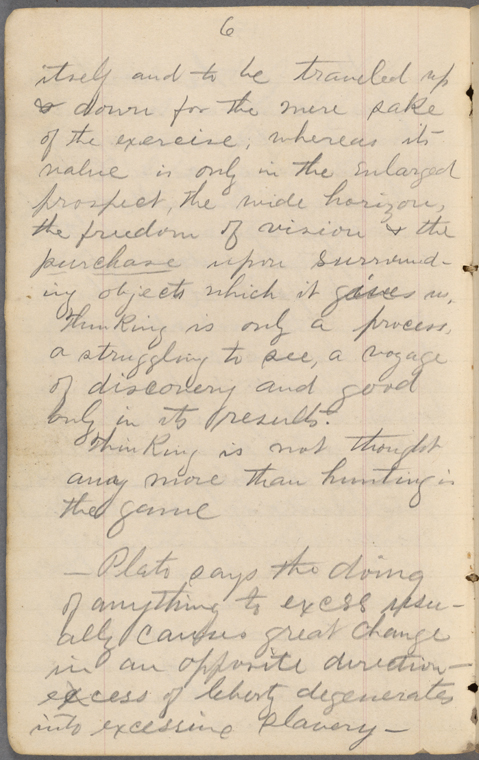 6
itself and to be traveled up
& down for the mere sake
of the exercise, whereas its
value is only in the enlarged
prospect, the wide horizon,
the freedom of vision & the
purchase upon surround-
ing objects which it gives us.
Thinking is only a process,
a struggling to see, a voyage
of discovery and good
only in its results.
Thinking is not thought
any more than hunting is
the game
— Plato says the doing
of anything to excess usu-
ally causes great change
in an opposite direction —
excess of liberty degenerates
into excessive slavery —